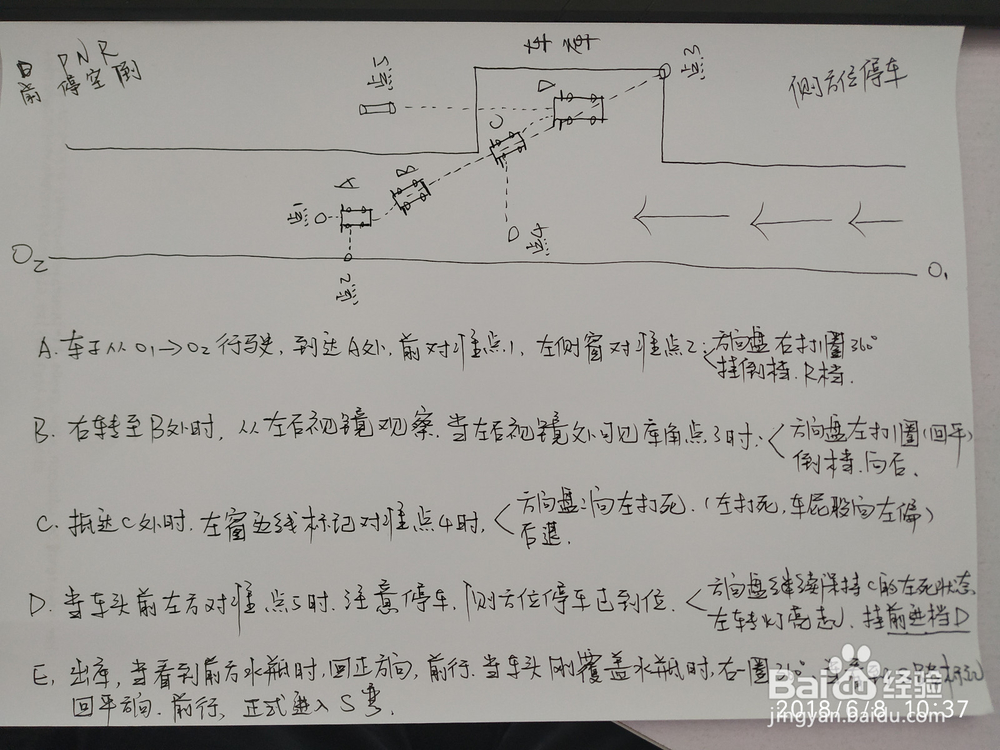 D P N R
前 停 空 倒
车库
侧方位停车
点5
点3
D
C
B
A
点1
点4
点2
O2
O1
A. 车子从O1→O2行驶, 到达A处, 前对准点1, 左侧窗对准点2: 方向盘右打1圈360°
挂倒档. R档.
B. 右转至B处时, 从左后视镜观察. 当左后视镜处可见库角点3时: 方向盘左打1圈(回平)
倒档. 向后.
C. 抵达C处时. 左窗边线标记对准点4时, 方向盘: 向左打死. (左打死, 车屁股向左偏)
后退.
D. 当车头前左方对准点5时. 注意停车, 侧方位停车已到位. 方向盘继续保持C的左死状态
左车转灯亮起, 挂前进档D
E. 出库, 当看到前方水瓶时, 回正方向, 前行. 当车头刚覆盖水瓶时, 右一圈360°
回平方向. 前行, 正式进入S弯.
Baidu 经验
jingyan.baidu.com
2018/6/8 10:37